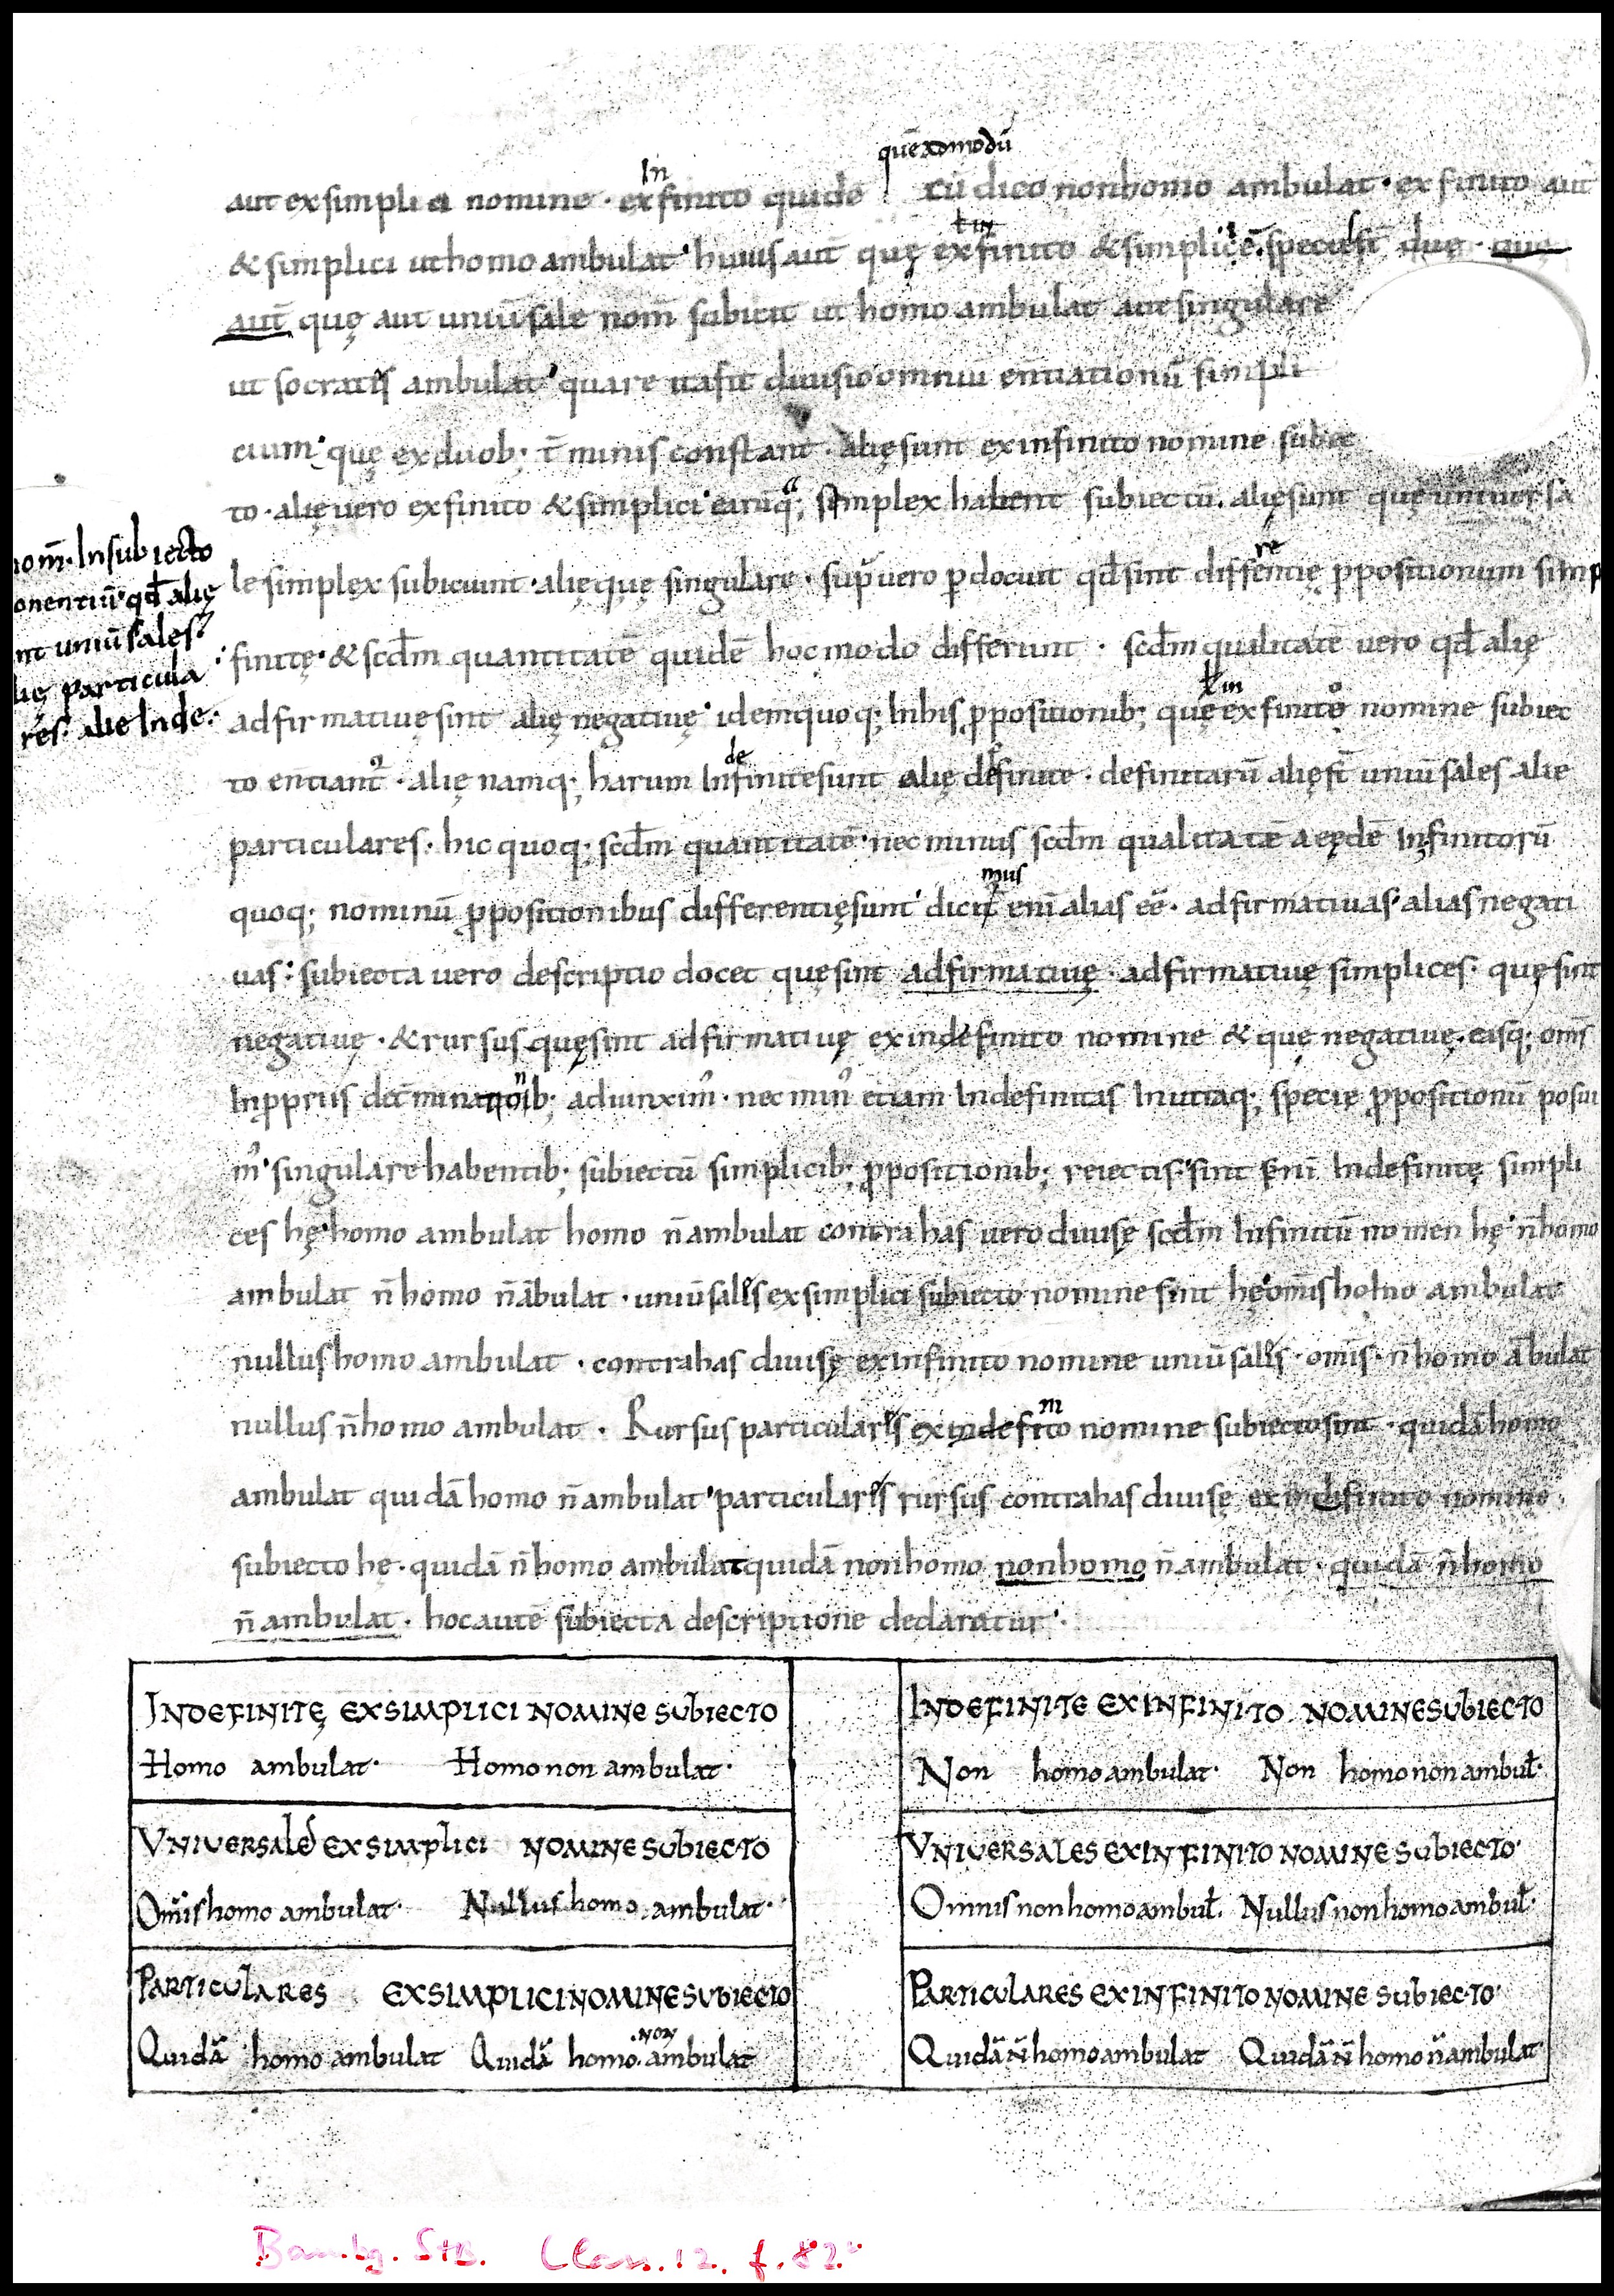 quēadmodū
In
aut ex simplici nomine · ex finito quidē cū dico non homo ambulat · ex finito aut
ł in
& simplici ut homo ambulat · huius aut̄ quę ex finito & simplici ē · species sī duę · quę
aut̄ quę aut univ̄sale nom̄ subicit ut homo ambulat aut singulare
ut socratis ambulat · quare ita fit divisio omniū enūtiationū simpli
cium · quę ex duob; t̄minis constant · alię sunt ex infinito nomine subiec
to · alię vero ex finito & simplici · earūq; simplex habent subiectū · alię sunt quę universa
re
le simplex subiciunt · alię quę singulare · sup̄ vero p̄docuit qđ sint differentię p̄positionum simp
finitę · & scđm quantitatē quidē hoc modo differunt · scđm qualitatē vero qđ alię
ł in
adfirmativę sint alię negativę · idem quoq; In his p̄positionib; quę ex finito nomine subiec
de
to enūtiant̄ · alię namq; harum Infinite sunt alię definite · definitarū alię sī univ̄sales alie
particulares · hic quoq; scđm quantitatē · nec minus scđm qualitatē aeędē Infinitorū
mus
quoq; nominū p̄positionibus differentię sunt · dicit̄ enī alias eē · adfirmativas · alias negati
vas · subiecta vero descriptio docet quę sint adfirmativę · adfirmativę simplices · quę sint
negativę · & rursus quę sint adfirmativę ex indefinito nomine & quę negativę · easq; om̄s
In p̄priis det̄minationib; adiunxim᾽ · nec min᾽ etiam Indefinitas In utraq; specię p̄positionū posui
m᾽ · singulare habentib; subiectū simplicib; p̄positionib; reiectis · sint enī Indefinitę simpli
ces hę · homo ambulat homo n̄ ambulat contra has vero divisę scđm Infinitū nomen hę · n̄ homo
ambulat n̄ homo n̄ ābulat · univ̄sales ex simplici subiecto nomine sint hę · om̄is homo ambulat
nullus homo ambulat · contra has divisę ex infinito nomine univ̄sales · om̄is · n̄ homo ābulat
nullus n̄ homo ambulat · Rursus particulares ex indefinito nomine subiecto sint · quidā homo
ambulat quidā homo n̄ ambulat · particulares rursus contra has divisę ex indefinito nomine
subiecto hę · quidā n̄ homo ambulat quidā non homo non homo n̄ ambulat · quidā n̄ homo
n̄ ambulat · hoc autē subiecta descriptione declaratur ·
nom̄ · In subiecto
onentiū · qđ alię
nt univ̄sales
lię particula
res · alie Inde ·
INDEFINITĘ EX SIMPLICI NOMINE SUBIECTO
Homo ambulat · Homo non ambulat ·
UNIVERSALES EX SIMPLICI NOMINE SUBIECTO
Om̄is homo ambulat · Nullus homo ambulat ·
PARTICULARES EX SIMPLICI NOMINE SUBIECTO
Quidā homo ambulat Quidā homo · NON ambulat
INDEFINITE EX INFINITO NOMINE SUBIECTO
Non homo ambulat · Non homo non ambuł ·
UNIVERSALES EX INFINITO NOMINE SUBIECTO ·
Omnis non homo ambuł · Nullus non homo ambuł ·
PARTICULARES EX INFINITO NOMINE SUBIECTO ·
Quidā n̄ homo ambulat Quidā n̄ homo n̄ ambulat
Bambg. StB. Class. 12. f. 82ᵛ